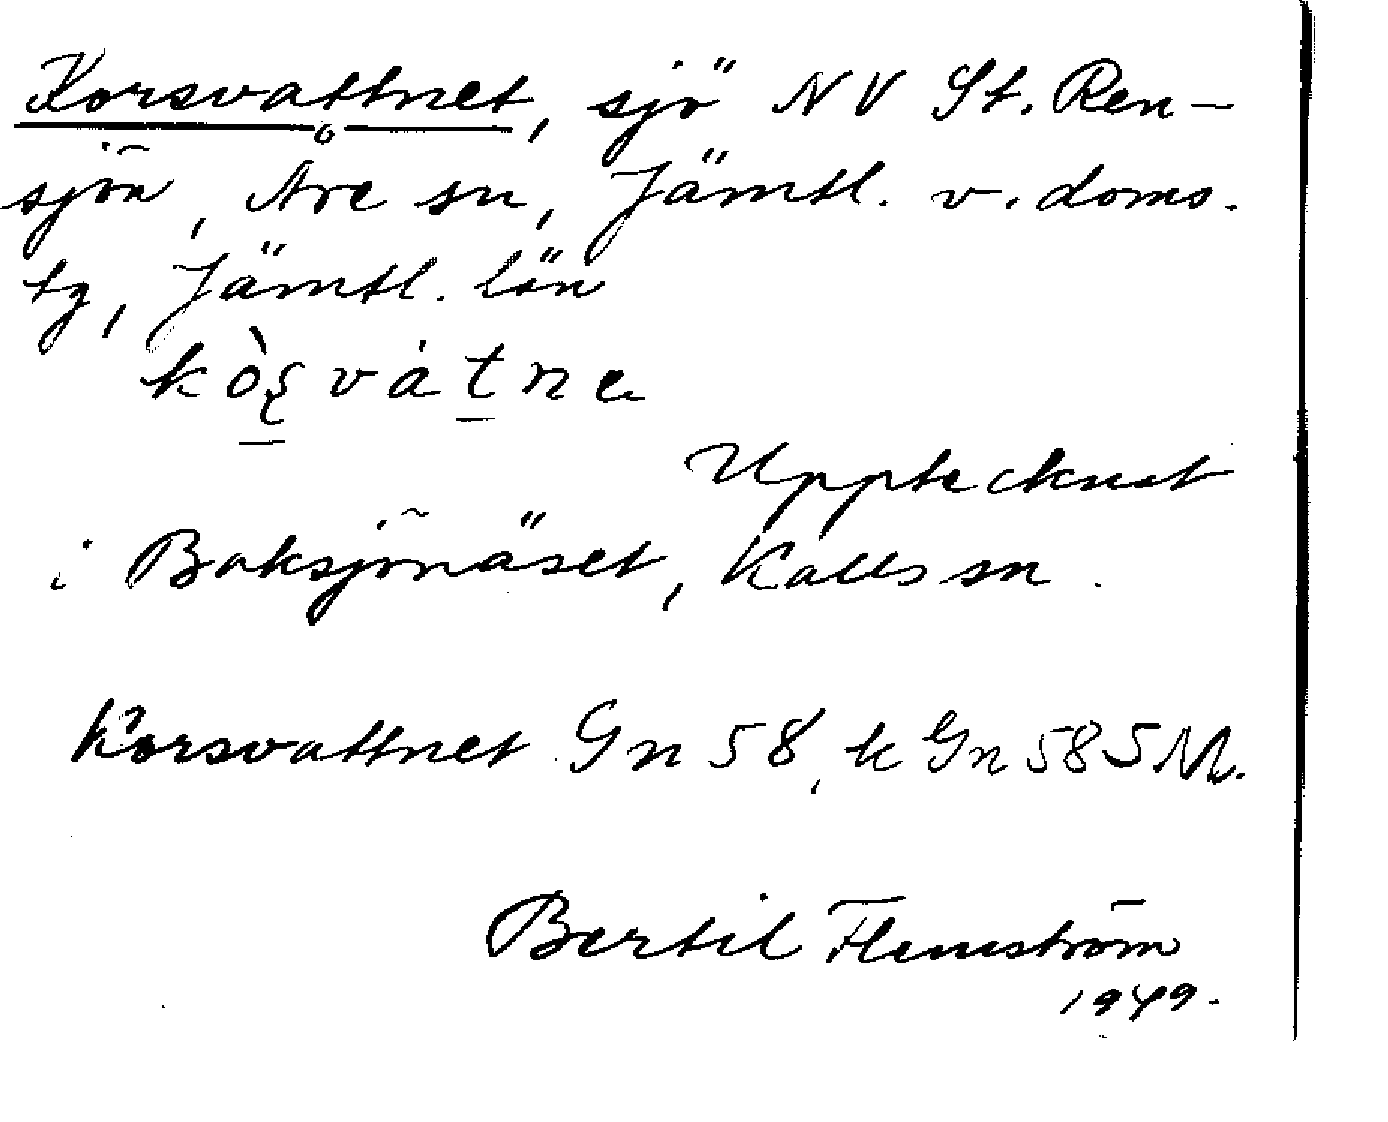 Korsvattnet, sjö NV St. Ren-
sjön, Åre sn, Jämtl. v. doms.
tg, Jämtl. län
kòʂvàtne
Upptecknat
i Baksjönäset, Kalls sn.
Korsvattnet Gn 58, k Gn 58 5 M.
Bertil Flemström
1949.